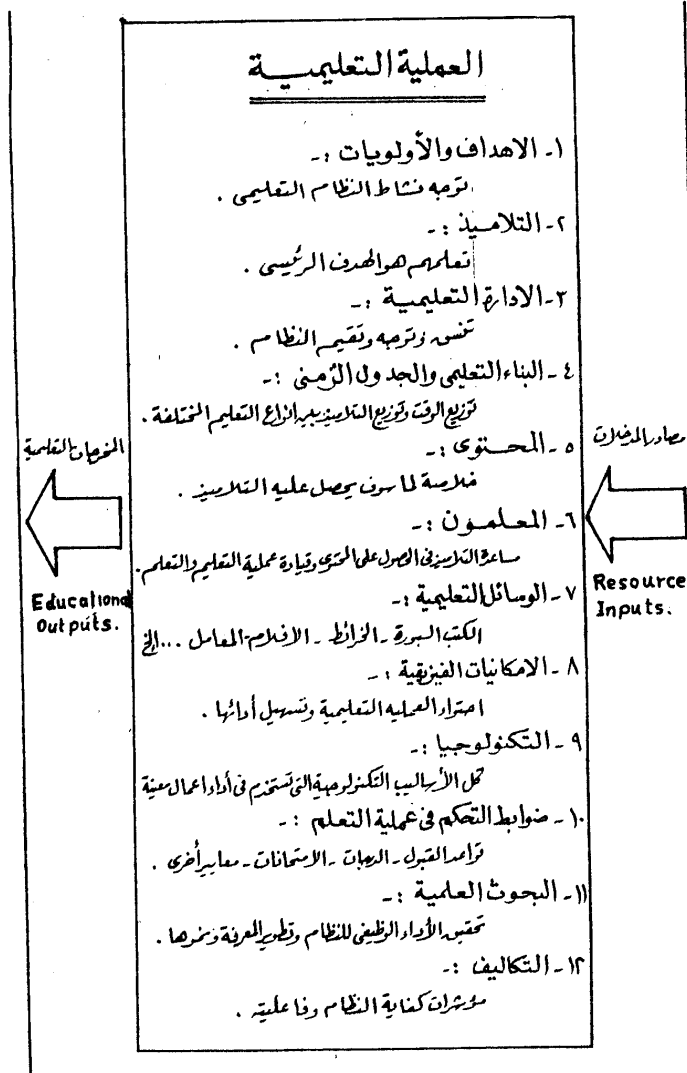 العملية التعليميــة
١- الاهداف والأولويات :-
توجه نشاط النظام التعليمى .
٢- التلاميذ :-
تعلمهم هو الهدف الرئيسى .
٣- الادارة التعليمية :-
تنسق وتوجه وتقيم النظام .
٤- البناء التعليمى والجدول الزمنى :-
توزيع الوقت وتوزيع التلاميذ بين انواع التعليم المختلفة .
٥- المحتوى :-
خلاصة لما سوف يحصل عليه التلاميذ .
٦- المعلمون :-
مساعدة التلاميذ فى الحصول على المحتوى وقيادة عملية التعليم والتعلم .
٧- الوسائل التعليمية :-
الكتب السبورة - الخرائط - الافلام - المعامل ... الخ
٨- الامكانيات الفيزيقية :-
احتواء العمليه التعليمية وتسهيل أدائها .
٩- التكنولوجيا :-
كل الأساليب التكنولوجية التى تستخدم فى أداء اعمال معينة
١٠- ضوابط التحكم فى عملية التعلم :-
قواعد القبول - الدرجات - الامتحانات - معايير أخرى .
١١- البحوث العلمية :-
تحقيق الأداء الوظيفى للنظام وتطوير المعرفة ونموها .
١٢- التكاليف :-
مؤشرات كفاية النظام وفاعليته .
مصادر المدخلات
Resource
Inputs.
المخرجات التعليمية
Educational
Outputs.